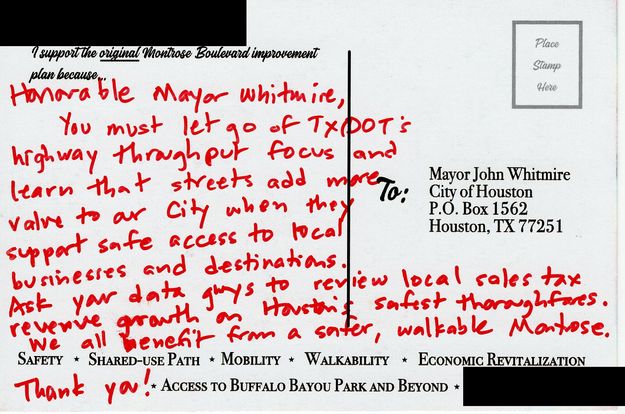 I support the original Montrose Boulevard improvement
plan because...
Honorable Mayor Whitmire,
You must let go of TxDOT's
highway throughput focus and
learn that streets add more
value to our City when they
support safe access to local
businesses and destinations.
Ask your data guys to review local sales tax
revenue growth on Houston's safest thoroughfares.
We all benefit from a safer, walkable Montrose.
Thank you!
Place
Stamp
Here
To:
Mayor John Whitmire
City of Houston
P.O. Box 1562
Houston, TX 77251
Safety ⋆ Shared-use Path ⋆ Mobility ⋆ Walkability ⋆ Economic Revitalization
⋆ Access to Buffalo Bayou Park and Beyond ⋆